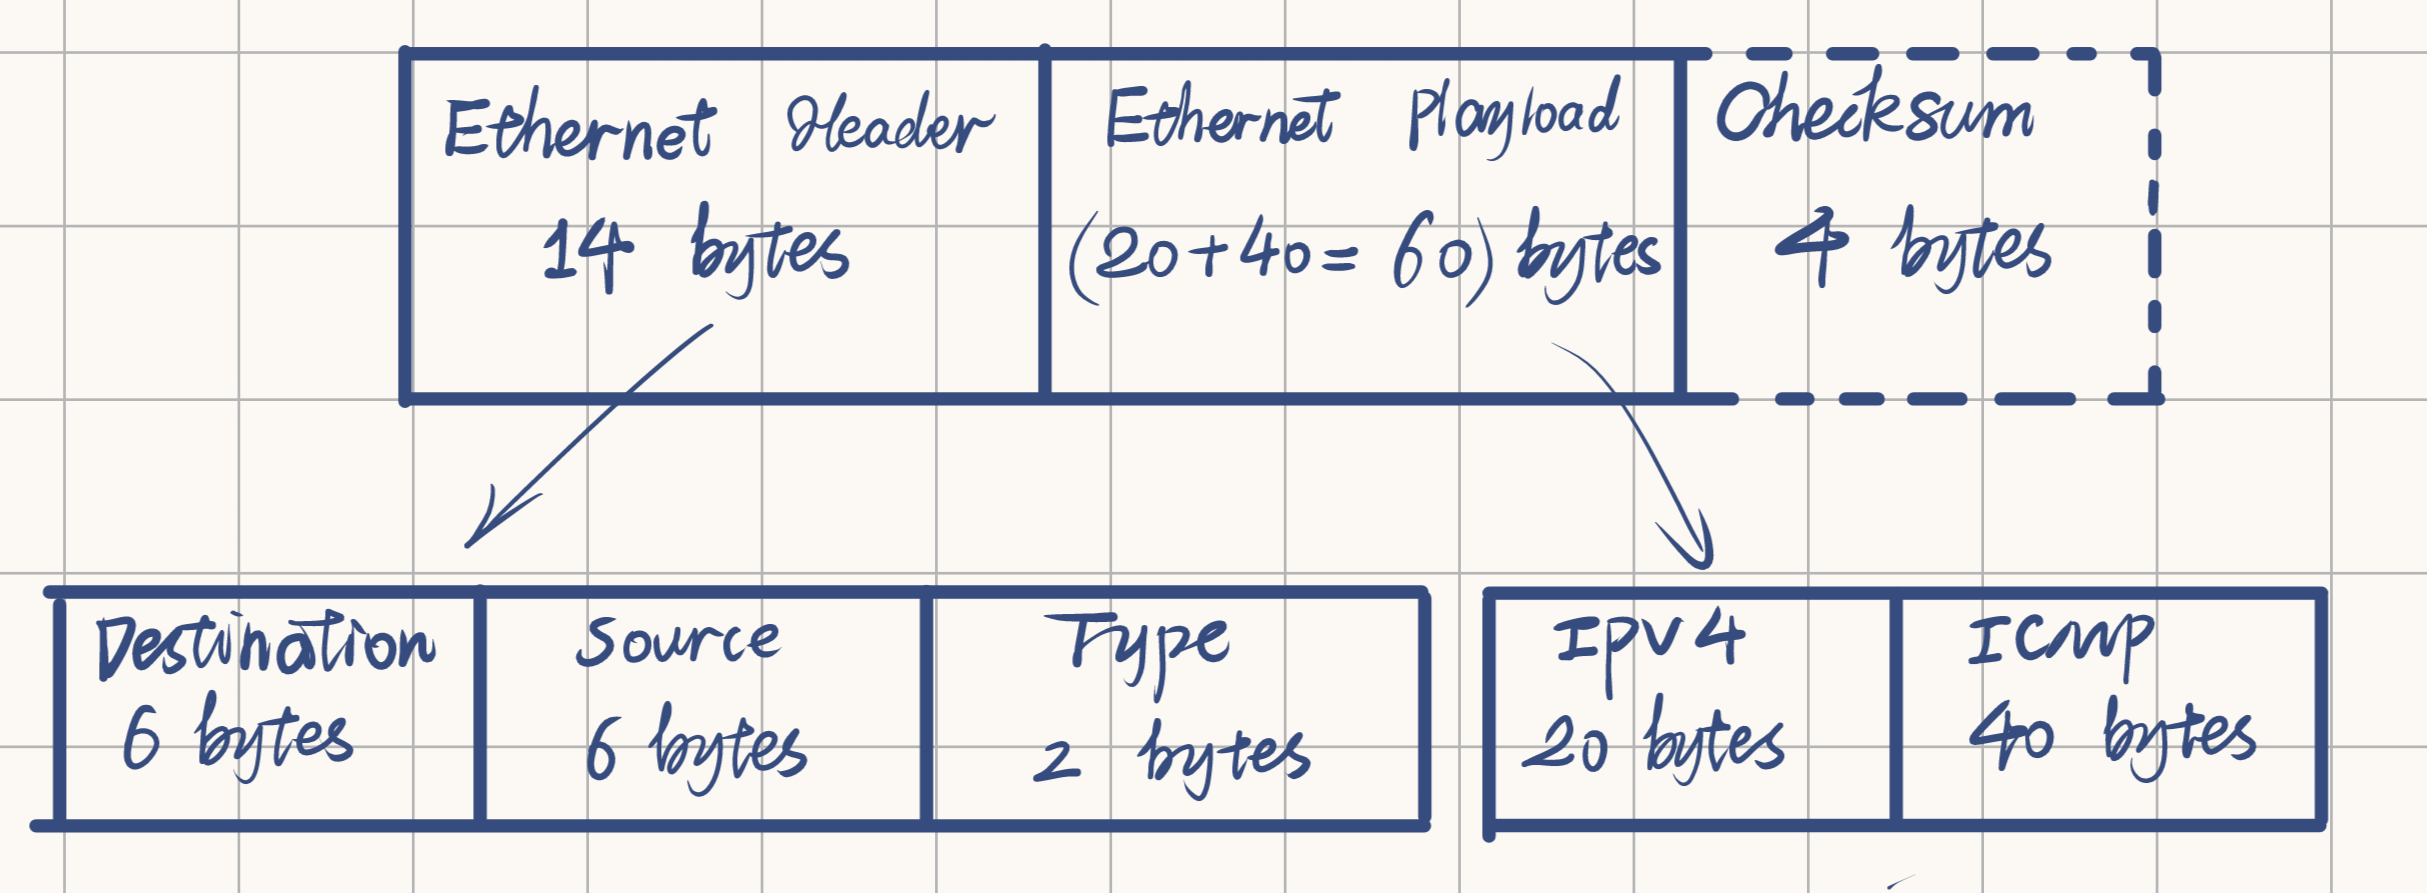 Ethernet Header
14 bytes
Ethernet Playload
(20+40= 60) bytes
Checksum
4 bytes
Destination
6 bytes
Source
6 bytes
Type
2 bytes
IPV4
20 bytes
ICMP
40 bytes